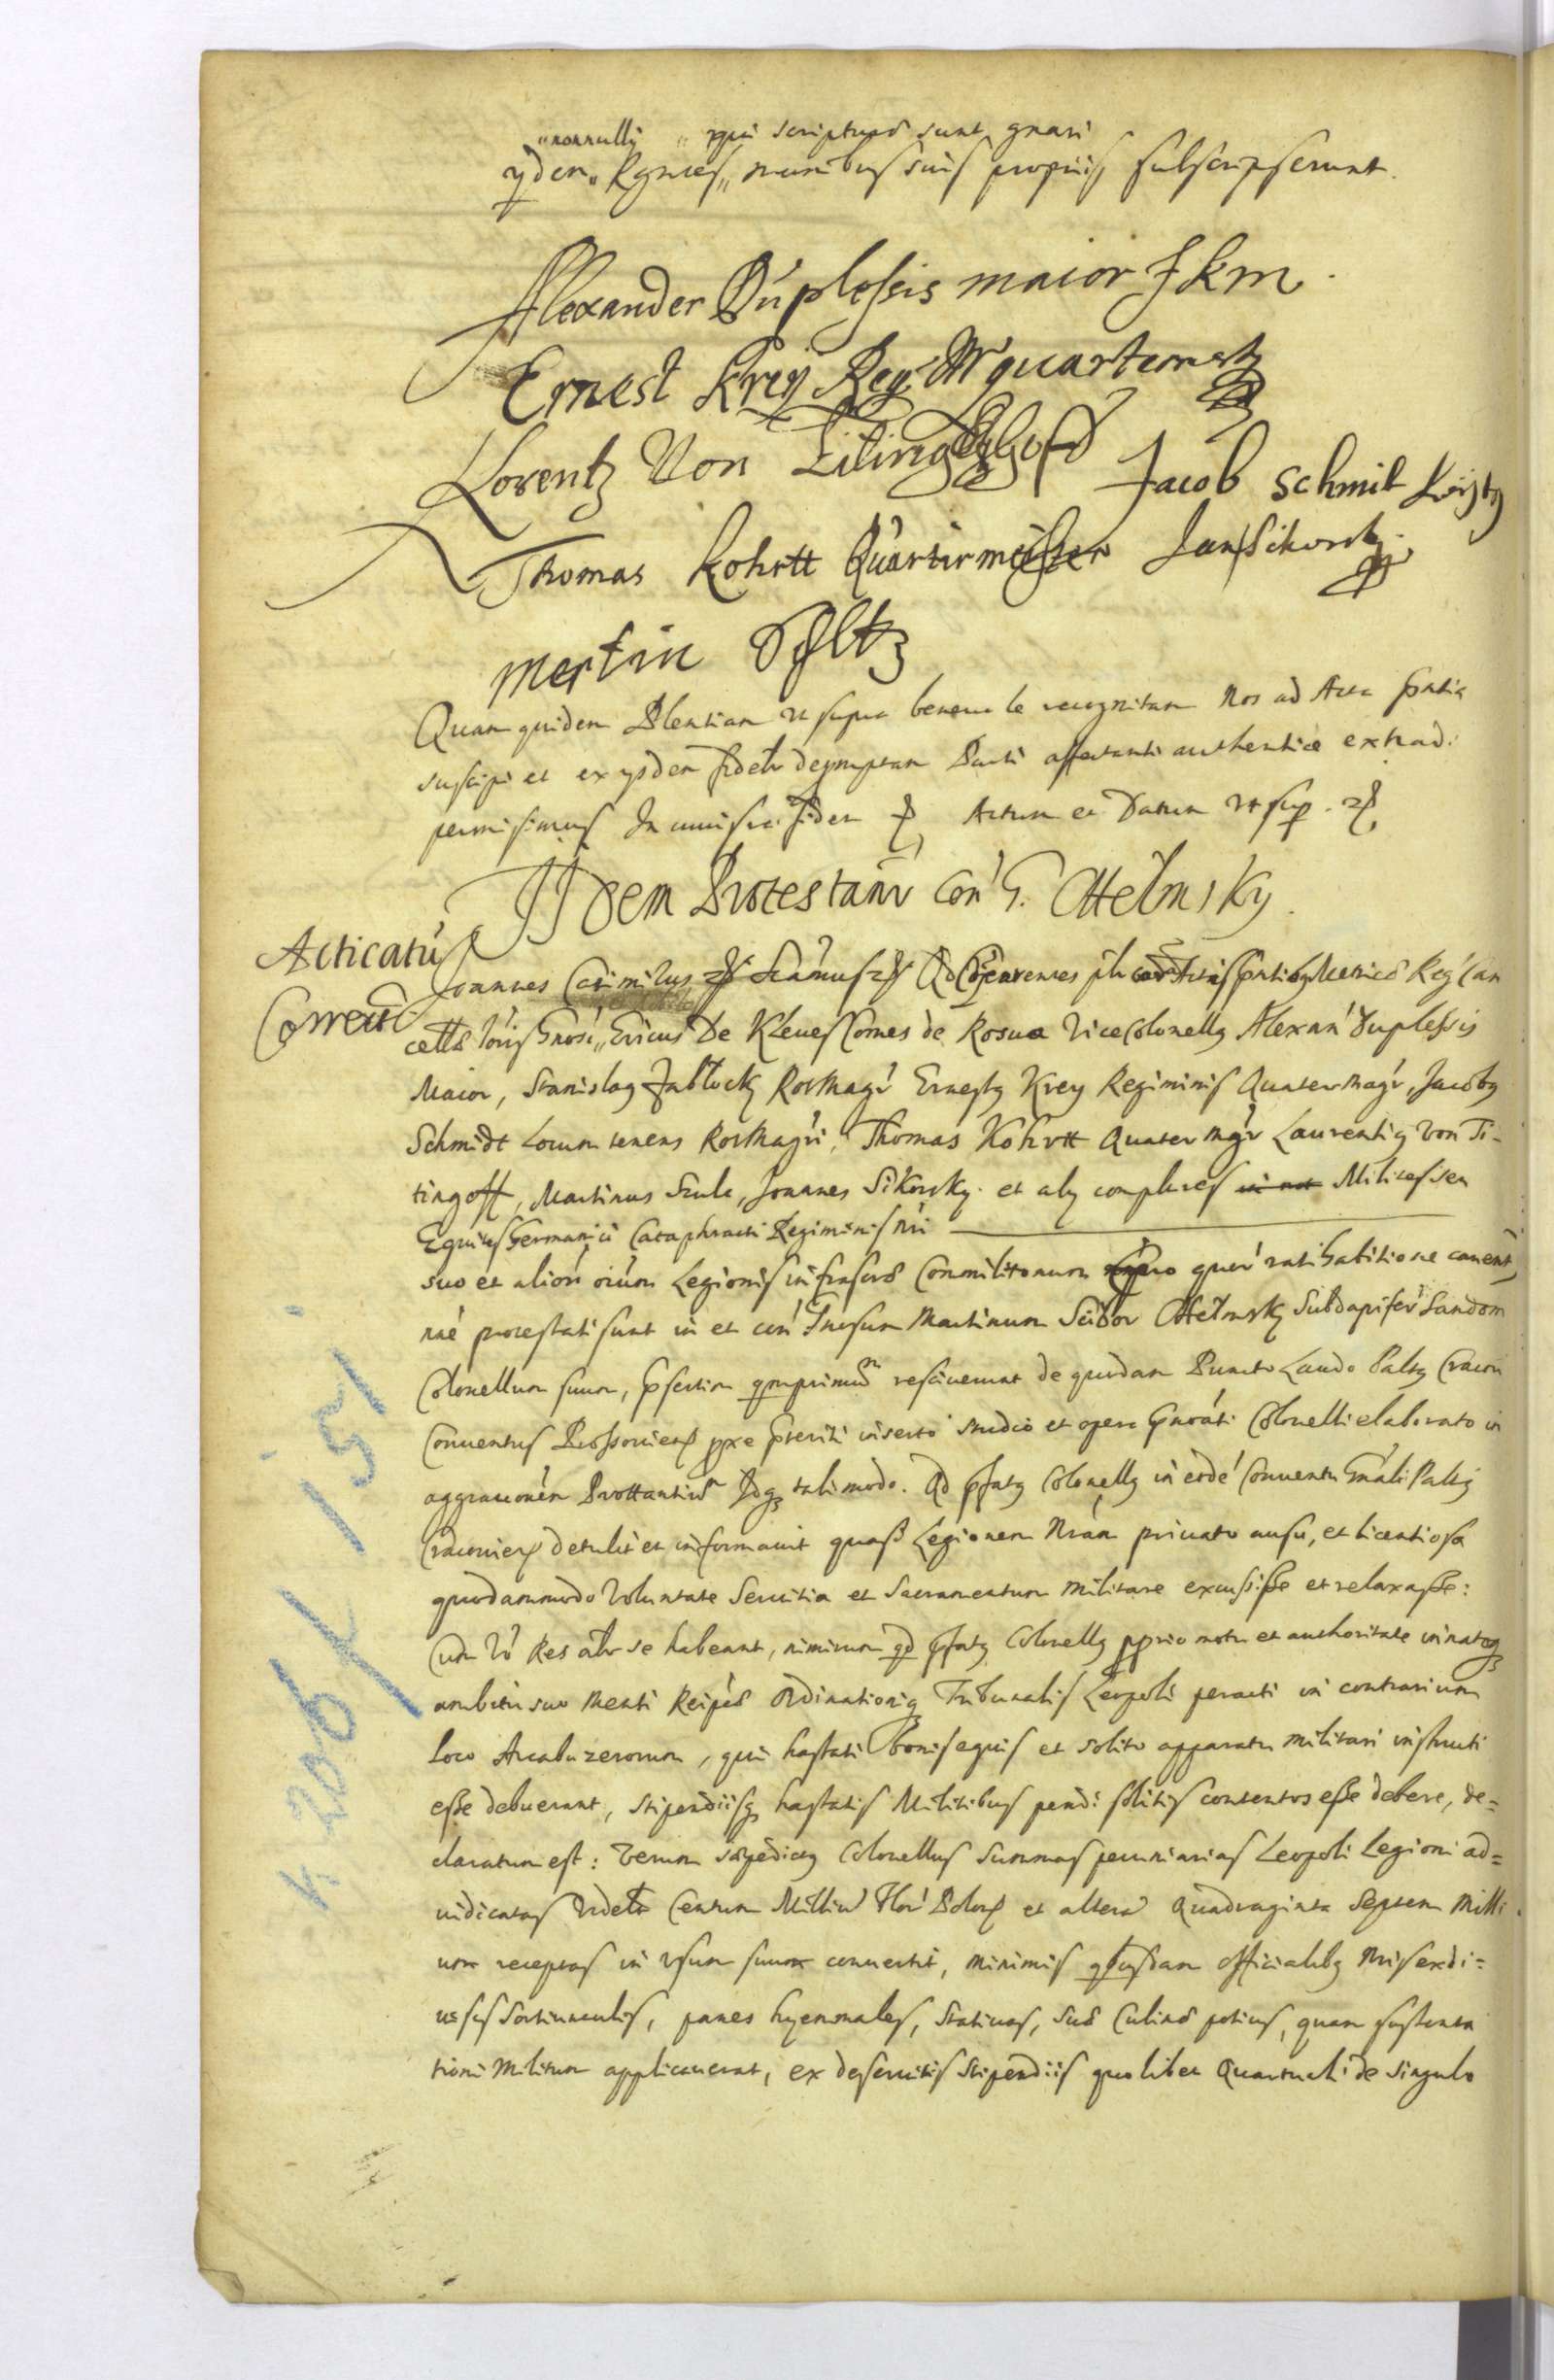 "nonnulli " qui scripturæ sunt gnari
ijdem " Rgntes " manibus suis proprijs subscripserunt.
Alexander Duplessis maior JKM
Ernest Kreij Reg. quarterm
Lorentz Von Titing hoff Jacob Schmit
Thomas Kohrtt Quartirmeister Jan Sikorsky
Mertin
Quam quidem Plentiam ut supra benevole recognitam Nos ad Acta pntia
suscipi et ex ijsdem fidelr depromptam Parti affectanti authentice extradi
permisimus In cuius rei fidem Actum et Datum ut sup.
IIdem Protestanr con G. Chełmsky.
Acticatũ
Correct
Joannes Casimirus Ad Acta pntibq Metrices Reg Can
cellæ Ericus De Kleues Comes de Rosua ViceColonellq Alexan Duplessis
Maior, Stanislaq Jabłocky RotMagr Ernestq Krey Regiminis QuaterMagr, Jacobq
Schmidt Locum tenens RotMagri, Thomas Kohrtt Quatermgr Laurentiq Von Ti-
tingoff, Martinus Szulc, Joannes Sikorsky et alij complures Milites seu
Equites Germanici Cataphracti Regiminis nri
suo et alior oium Legionis infrascrae Commilitonum quor ratihabitione cauent,
nē protestati sunt in et con Gnosum Martinum Scibor Chełmsky Subdapifer Sandom
Colonellum suum, Psertim qmprimum resciuerunt de quodam Puncto Laudo Palts Cracou
Conuentus Proszouicens pxe preteriti inserto studio et opera Gnrati Colonelli elaborato in
aggrauonem Prottantium Idq tali modo. Qd pfatq Colonellq in eode Conuentu Gnali Paltq
Cracouien detulit et informauit quasi Legionem Nram priuato ausu, et licentiosa
quodammodo voluntate Seruitia et Sacramentum militare excussisse et relaxasse:
Cum vo Res alr se habeant, nimirum qd pfatq Colonellq pprio motu et authoritate
ambitu suo Menti Reipcæ Ordinationiq Tribunalis Leopoli peracti in contrarium
loco Arcabuzerorum, qui hastati bonis equis et solito apparatu militari instructi
esse debuerant, stipendiisq hastatis Militibus pendi solitis contentos esse debere, de=
claratum est: Verum saepedictq Colonellus Summas pecuniarias Leopoli Legioni ad=
iudicatas videlt Centum Milliu Flor Polon et altera Quadraginta Septem Milli
um receptas in usum suum conuertit, minimis quibusdam officialibq nris exdi=
uisis Sortiunculis, panes hyemales, Statiuas, suæ Culinæ potius, quam sustenta
tioni Militum applicauerat, ex deseruitis stipendiis quolibet Quartuali de singulo
k. 206 / 151